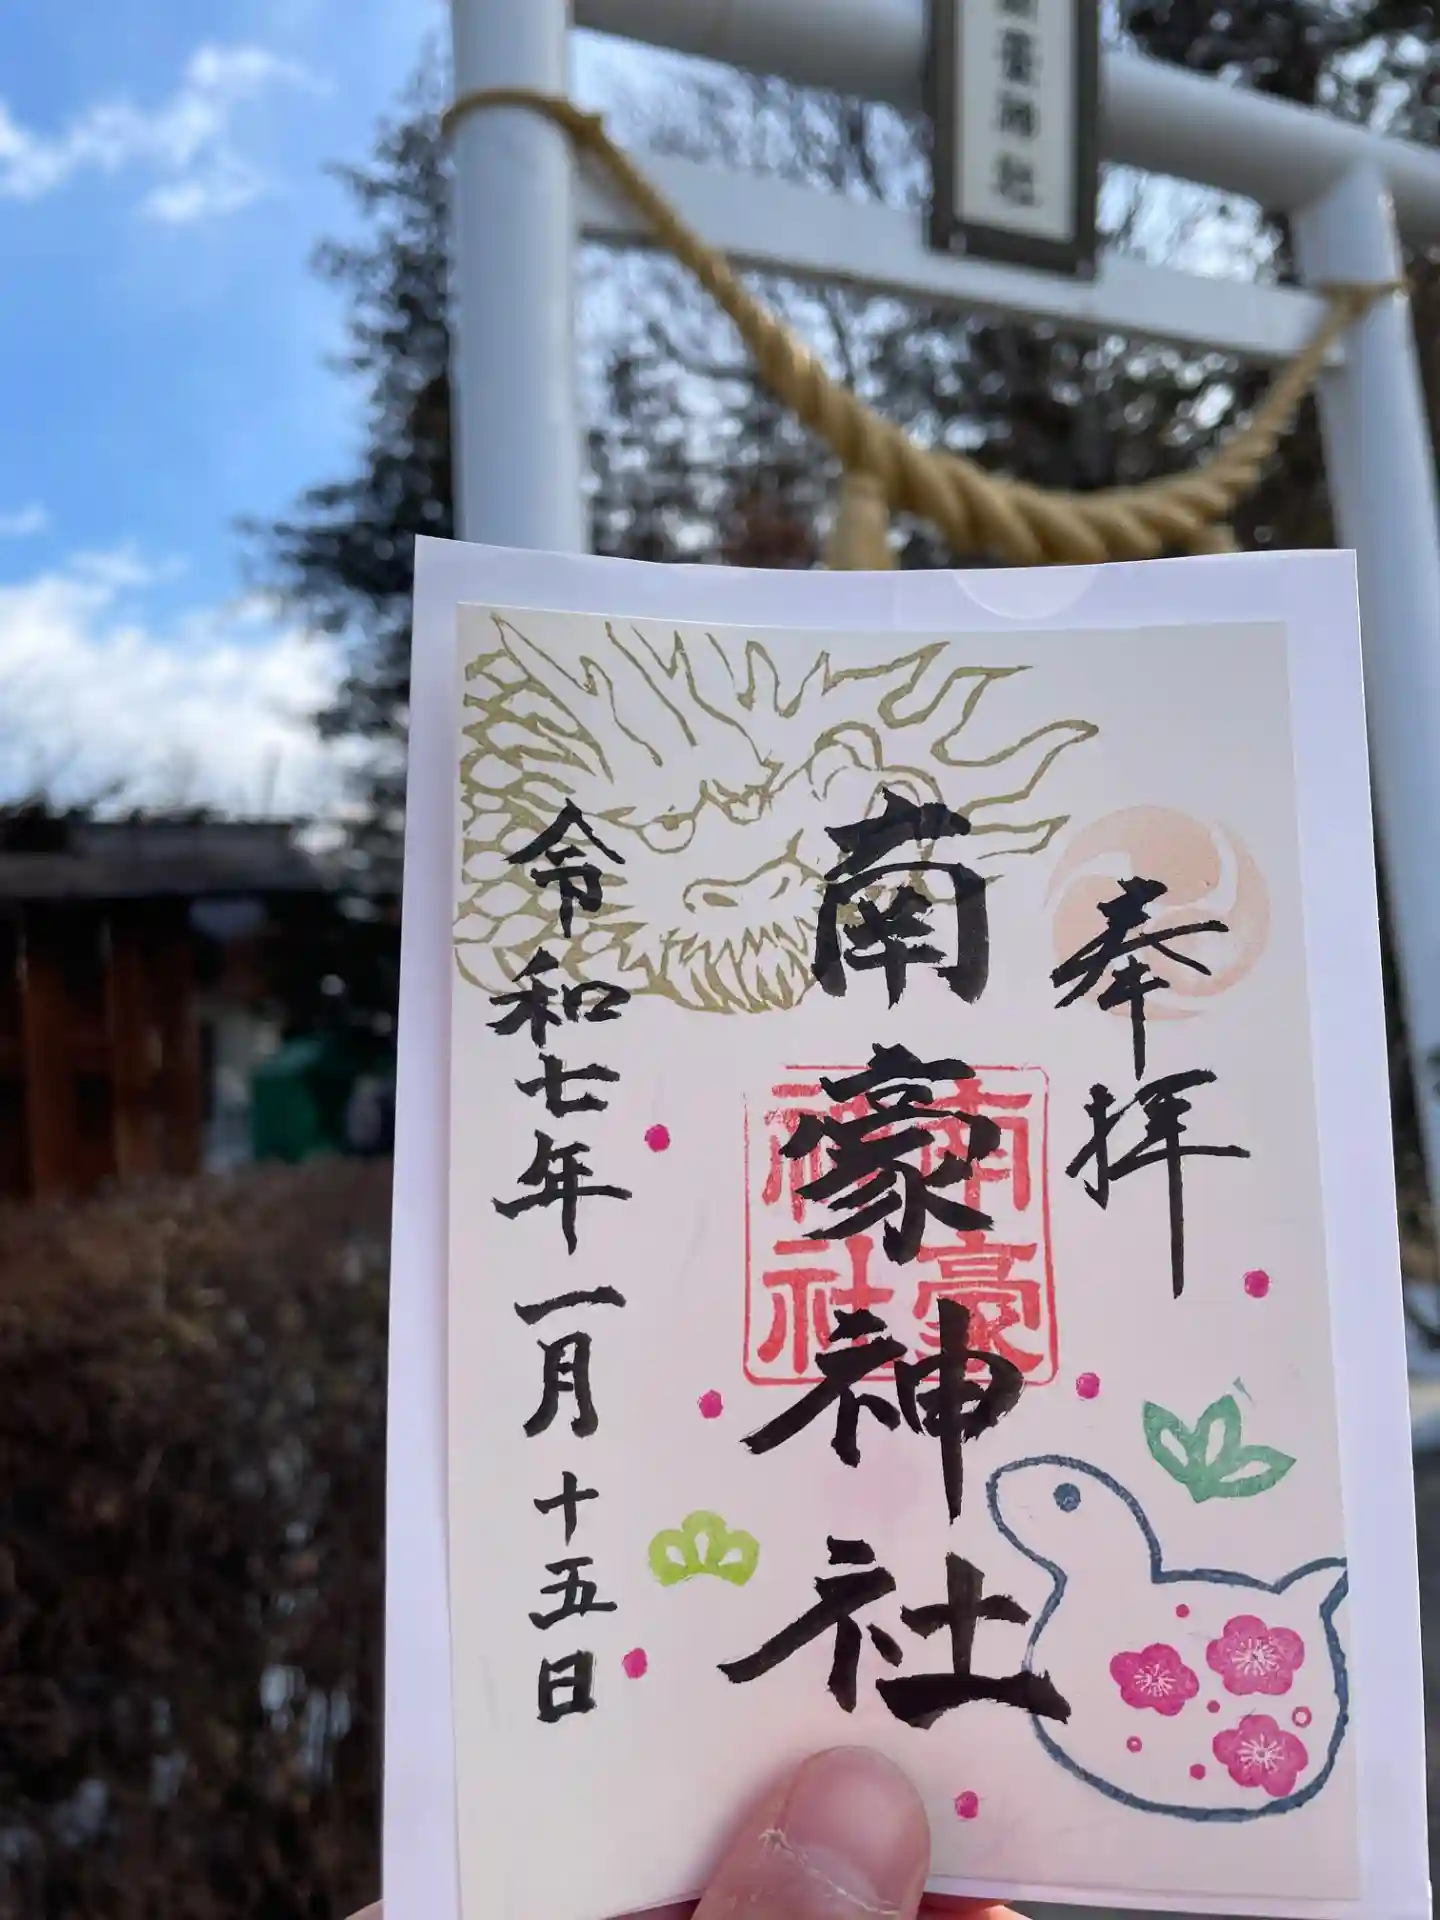 奉拝
南豪神社
南豪
神社
令和七年一月十五日
神社